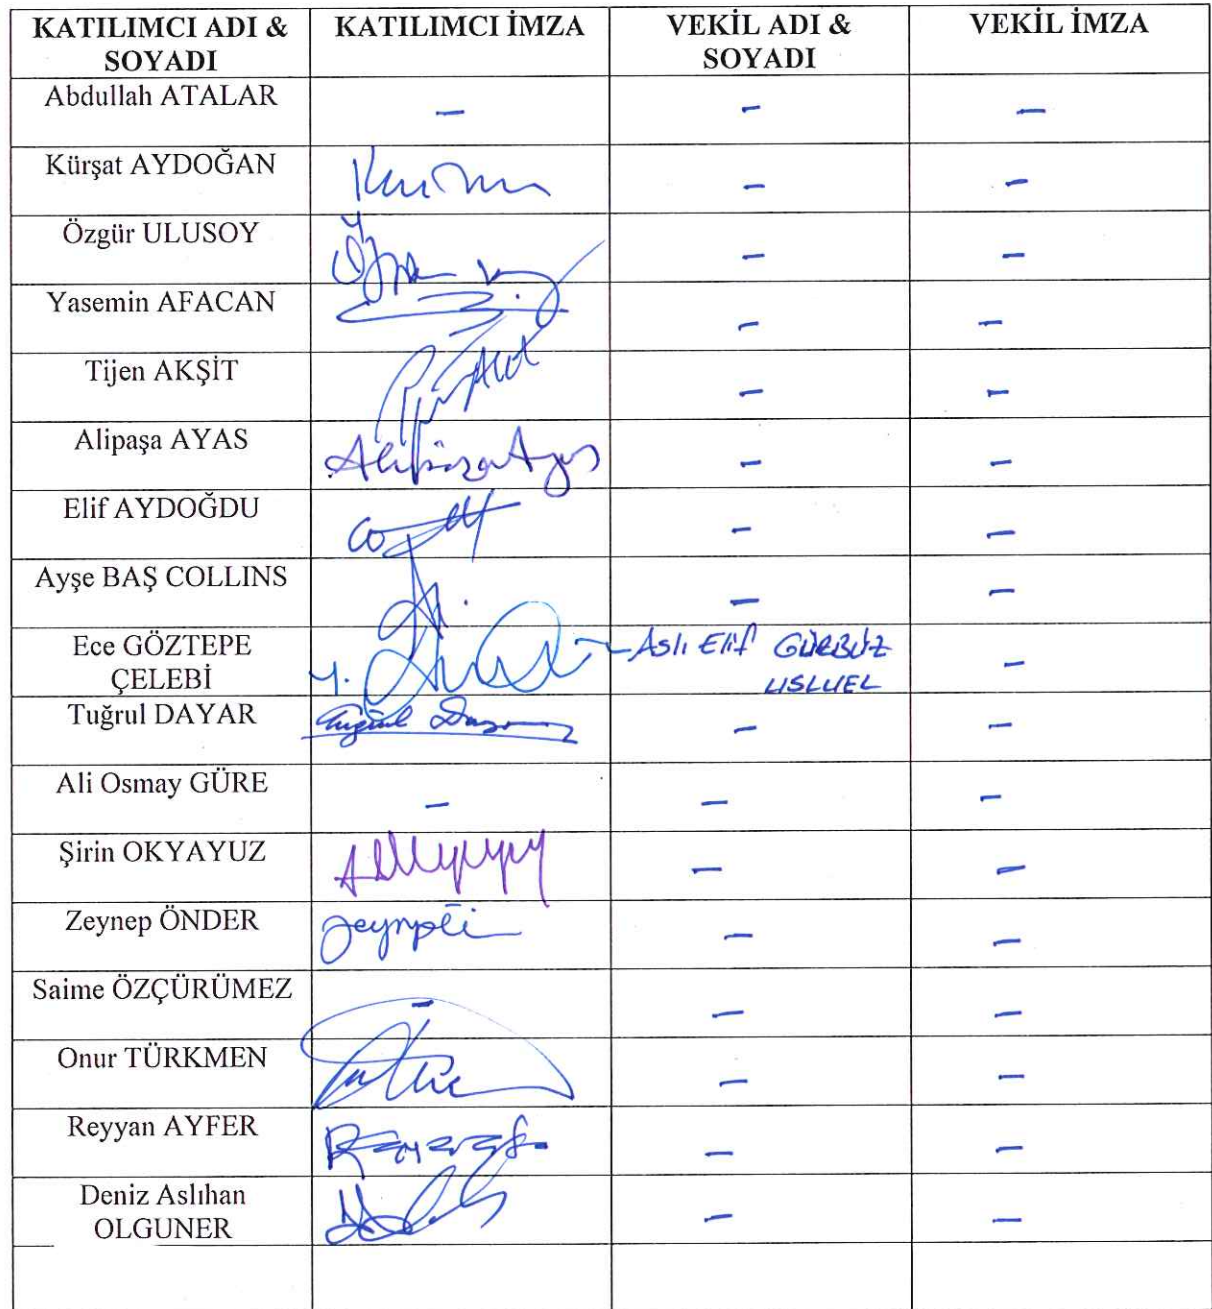 KATILIMCI ADI & SOYADI KATILIMCI İMZA VEKİL ADI & SOYADI VEKİL İMZA
Abdullah ATALAR – – –
Kürşat AYDOĞAN – –
Özgür ULUSOY – –
Yasemin AFACAN – –
Tijen AKŞİT – –
Alipaşa AYAS Alipaşa Ayas – –
Elif AYDOĞDU – –
Ayşe BAŞ COLLINS – –
Ece GÖZTEPE ÇELEBİ Aslı Elif GÜRBÜZ USLUEL –
Tuğrul DAYAR Tuğrul Dayar – –
Ali Osmay GÜRE – – –
Şirin OKYAYUZ – –
Zeynep ÖNDER – –
Saime ÖZÇÜRÜMEZ – – –
Onur TÜRKMEN – –
Reyyan AYFER – –
Deniz Aslıhan OLGUNER – –